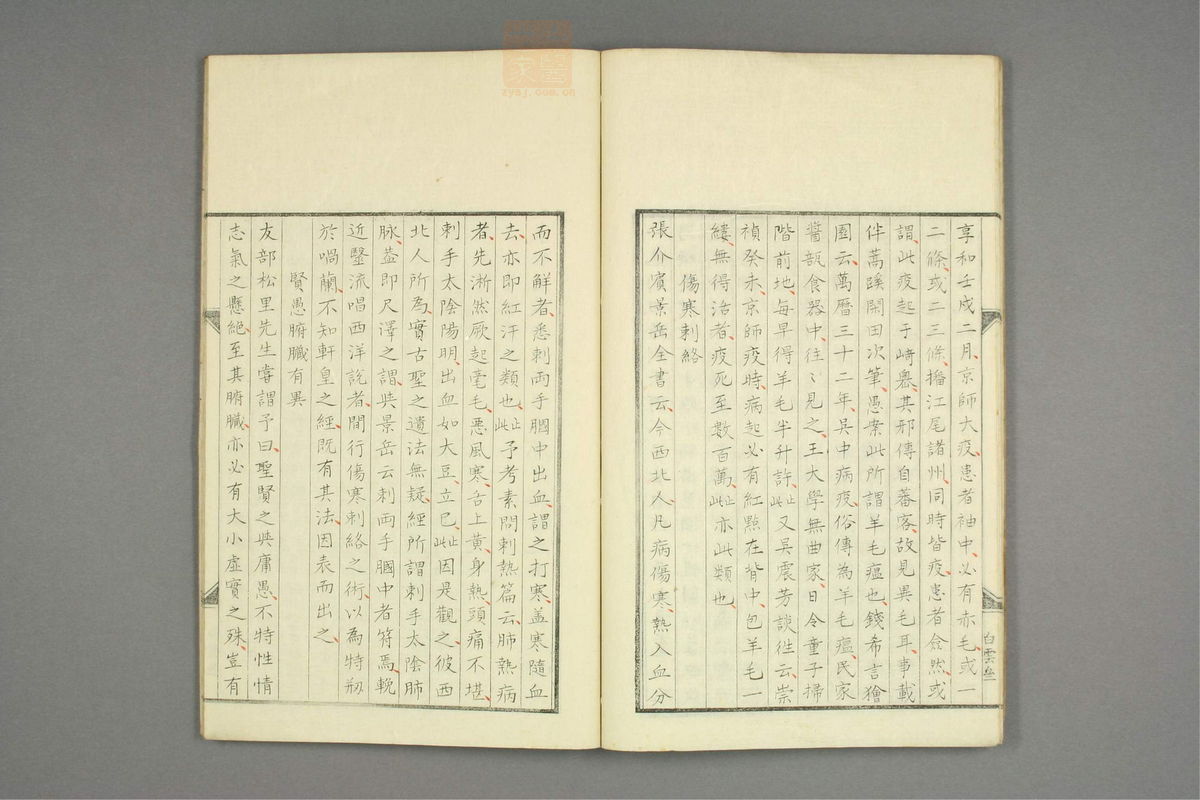 享和壬戌二月京師大疫患者袖中必有赤毛或一
二條或二三條播江尾諸州同時皆疫患者僉然或
謂此疫起于崎嶴其邪傳自蕃客故見異毛耳事載
伴蒿蹊閑田次筆愚案此所謂羊毛瘟也錢希言獪
園云萬曆三十二年吳中病疫俗傳為羊毛瘟民家
醬瓿食器中往〻見之王大學無曲家日令童子掃
階前地每早得羊毛半升許此止又吳震芳談徃云崇
禎癸未京師疫時病起必有紅點在背中包羊毛一
縷無得活者疫死至數百萬此止亦此類也
傷寒刺絡
張介賓景岳全書云今西北人凡病傷寒熱入血分
而不解者悉刺両手膕中出血謂之打寒盖寒隨血
去亦即紅汗之類也此止予考素問刺熱篇云肺熱病
者先淅然厥起毫毛惡風寒舌上黄身熱頭痛不堪
刺手太陰陽明出血如大豆立已此止因是觀之彼西
北人所為實古聖之遺法無疑經所謂刺手太陰肺
脉盖即尺澤之謂與景岳云刺両手膕中者符焉輓
近毉流唱西洋說者間行傷寒刺絡之術以為特剏
於喎蘭不知軒皇之經既有其法因表而出之
賢愚腑臟有異
友部松里先生嘗謂予曰聖賢之與庸愚不特性情
志氣之懸絕至其腑臟亦必有大小虛實之殊豈有
白雲
zysj.com.cn